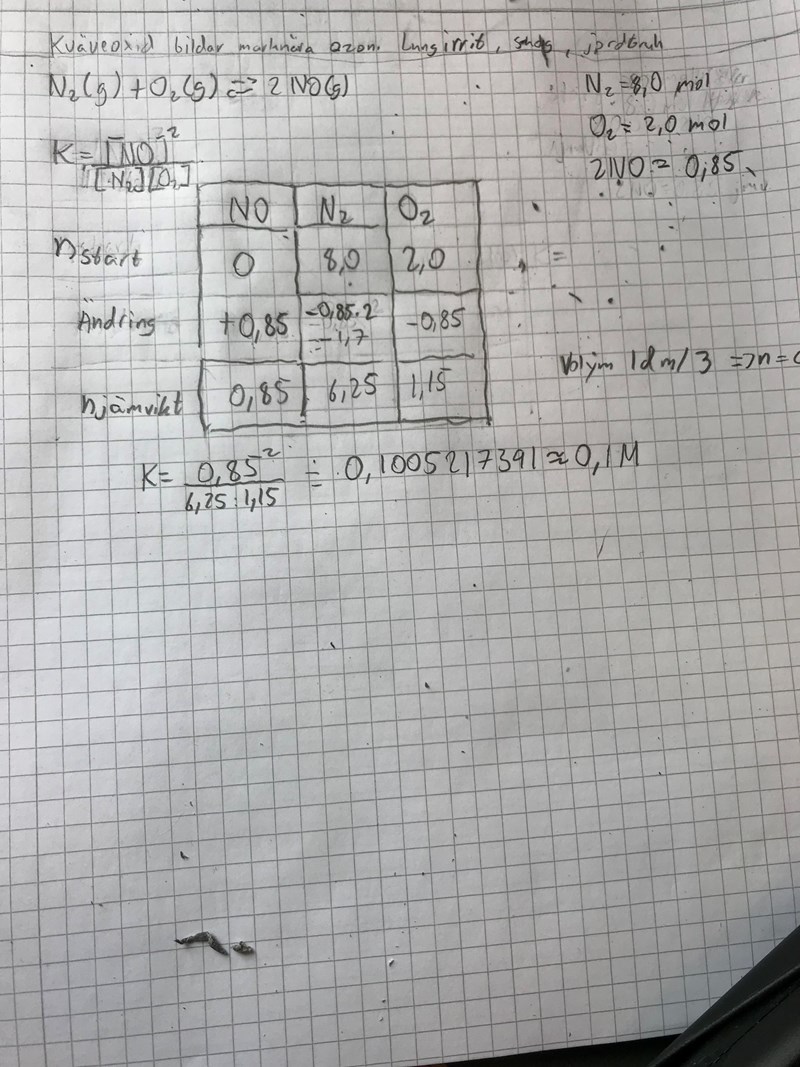 Kväveoxid bildar marknära ozon. Lungirrit,
N₂(g) + O₂(g) ⇌ 2 NO(g)
N₂ = 8,0 mol
O₂ = 2,0 mol
2NO = 0,85
K = [NO]²
[N₂][O₂]
NO N₂ O₂
nstart 0 8,0 2,0
Ändring +0,85 -0,85·2 = -1,7 -0,85
njämvikt 0,85 6,25 1,15
Volym 1dm/3 => n =
K = 0,85² = 0,1005217391 ≈ 0,1 M
6,25·1,15